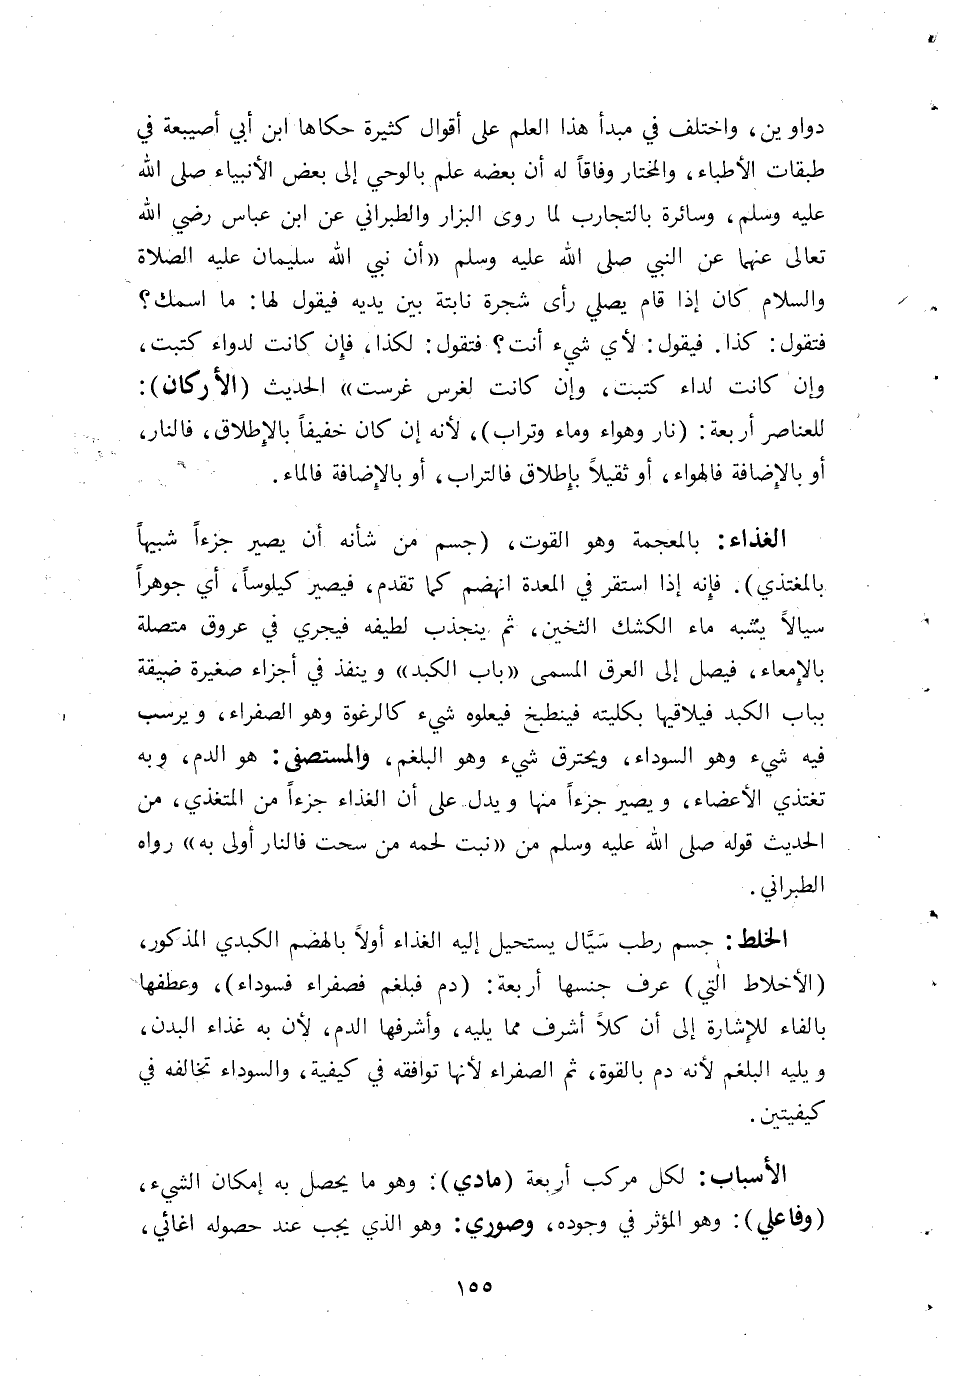 دواوين، واختلف في مبدأ هذا العلم على أقوال كثيرة حكاها ابن أبي أصيبعة في
طبقات الأطباء، والمختار وفاقاً له أن بعضه علم بالوحي إلى بعض الأنبياء صلى الله
عليه وسلم، وسائرة بالتجارب لما روى البزار والطبراني عن ابن عباس رضي الله
تعالى عنهما عن النبي صلى الله عليه وسلم «أن نبي الله سليمان عليه الصلاة
والسلام كان إذا قام يصلي رأى شجرة نابتة بين يديه فيقول لها: ما اسمك؟
فتقول: كذا. فيقول: لأي شيء أنت؟ فتقول: لكذا، فإن كانت لدواء كتبت،
وإن كانت لداء كتبت، وإن كانت لغرس غرست» الحديث (الأركان):
للعناصر أربعة: (نار وهواء وماء وتراب)، لأنه إن كان خفيفاً بالإطلاق، فالنار،
أو بالإضافة فالهواء، أو ثقيلاً بإطلاق فالتراب، أو بالإضافة فالماء.
الغذاء: بالمعجمة وهو القوت، (جسم من شأنه أن يصير جزءاً شبيهاً
بالمغتذي). فإنه إذا استقر في المعدة انهضم كما تقدم، فيصير كيلوساً، أي جوهراً
سيالاً يشبه ماء الكشك الثخين، ثم ينجذب لطيفه فيجري في عروق متصلة
بالإمعاء، فيصل إلى العرق المسمى «باب الكبد» وينفذ في أجزاء صغيرة ضيقة
بباب الكبد فيلاقيها بكليته فينطبخ فيعلوه شيء كالرغوة وهو الصفراء، ويرسب
فيه شيء وهو السوداء، ويحترق شيء وهو البلغم، والمستصفى: هو الدم، وبه
تغتذي الأعضاء، ويصير جزءاً منها ويدل على أن الغذاء جزءاً من المتغذي، من
الحديث قوله صلى الله عليه وسلم من «نبت لحمه من سحت فالنار أولى به» رواه
الطبراني.
الخلط: جسم رطب سَيَّال يستحيل إليه الغذاء أولاً بالهضم الكبدي المذكور،
(الأخلاط التي) عرف جنسها أربعة: (دم فبلغم فصفراء فسوداء)، وعطفها
بالفاء للإشارة إلى أن كلاً أشرف مما يليه، وأشرفها الدم، لأن به غذاء البدن،
ويليه البلغم لأنه دم بالقوة، ثم الصفراء لأنها توافقه في كيفية، والسوداء تخالفه في
كيفيتين.
الأسباب: لكل مركب أربعة (مادي): وهو ما يحصل به إمكان الشيء،
(وفاعلي): وهو المؤثر في وجوده، وصوري: وهو الذي يجب عند حصوله اغائي،
١٥٥